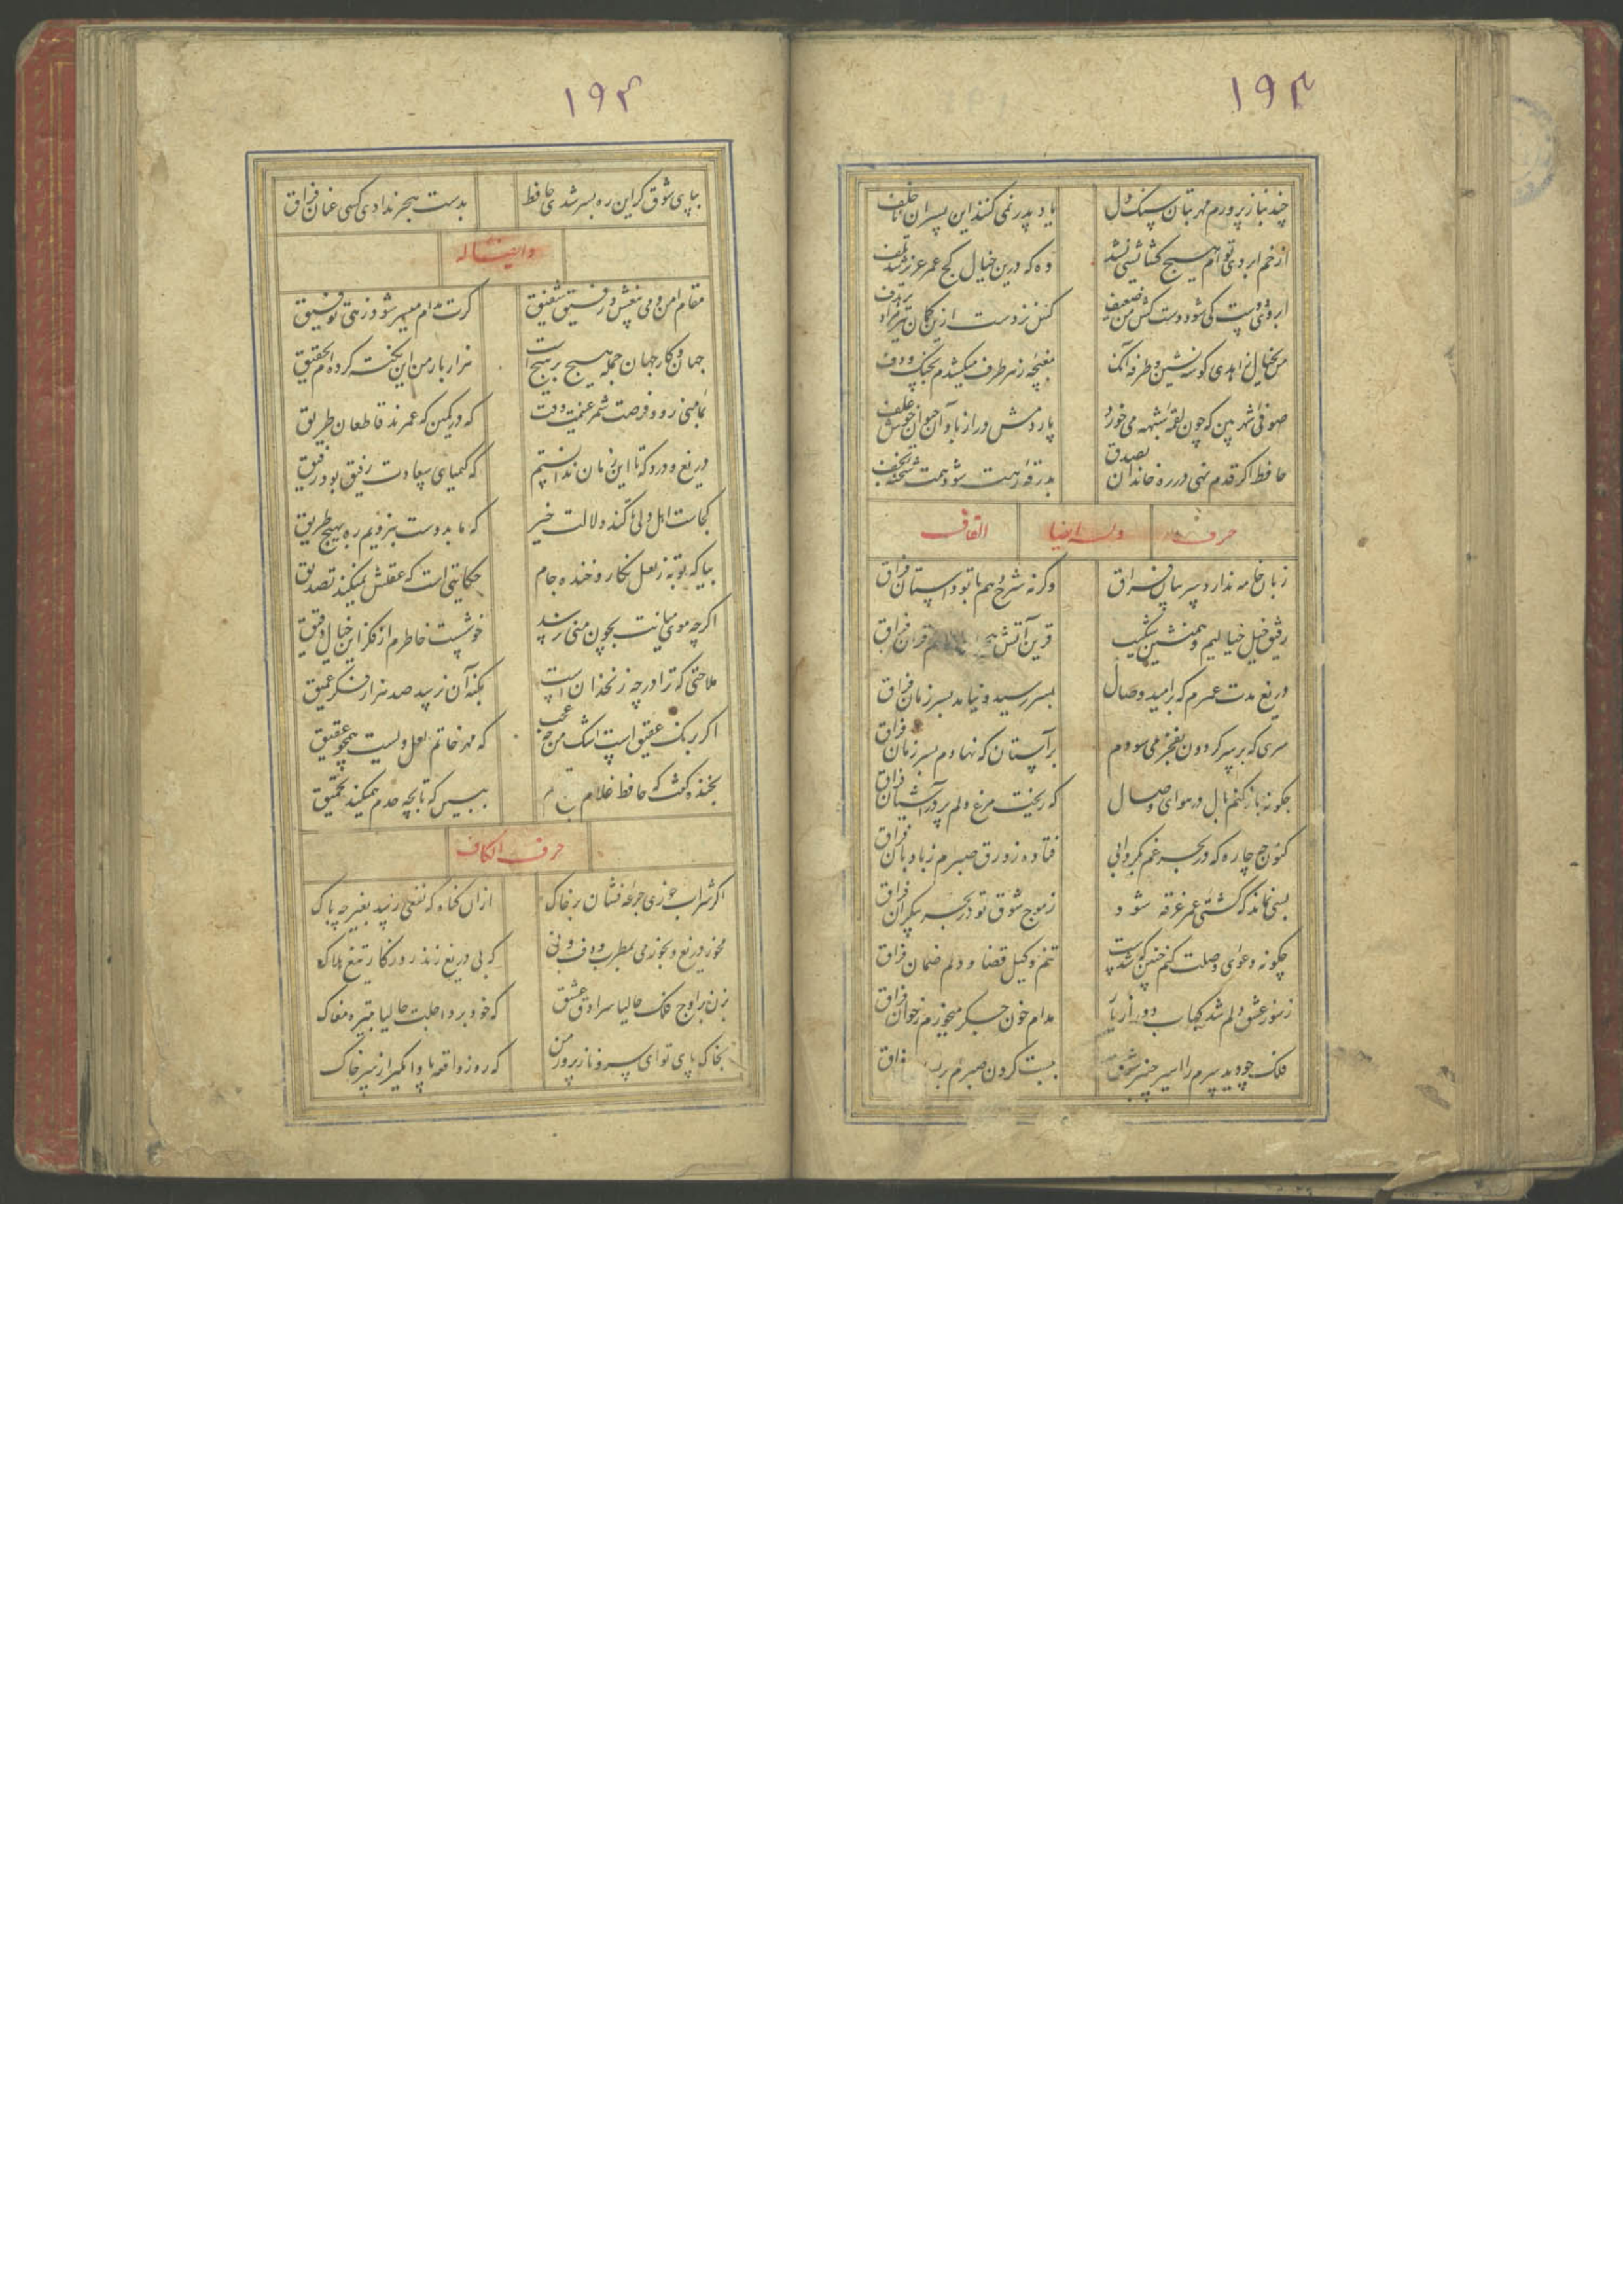 ۱۹۳
چند بناز پرورم مهر بتان سنکدل
یاد پدر نمی کنند این پسران ناخلف
از خم ابروی توام هیچ کشایشی نشد
وه که درین خیال کج عمر عزیز شد تلف
ابروی دوست کی شود دست کش من ضعیف
کس نزدست ازین کمان تیر مراد بر هدف
من بخیال زاهدی کوشه نشین و طرفه آنک
مغبچه ز هر طرف میکشدم بچنک و دف
صوفی شهر بین که چون لقمه شبهه می خورد
پاردمش دراز باد آن حیوان خوش علف
حافظ اکر قدم نهی در ره خاندان بصدق
بدرقه رهت شود همت شحنه نجف
حرف
وله ایضا
القاف
زبان خامه ندارد سر بیان فراق
وکرنه شرح دهم با تو داستان فراق
رفیق خیل خیالیم و همنشین شکیب
قرین آتش هجران و هم قران فراق
دریغ مدت عمرم که بر امید وصال
بسر رسید و نیامد بسر زمان فراق
سری که بر سر کردون بفخر می سودم
بر آستان که نهادم بسر زمان فراق
چکونه باز کنم بال در هوای وصال
که ریخت مرغ دلم پر در آشیان فراق
کنون چه چاره که در بحر غم بکردابی
فتاده زورق صبرم ز بادبان فراق
بسی نماند که کشتی عمر غرقه شود
ز موج شوق تو در بحر بیکران فراق
چکونه دعوی وصلت کنم چنین که شدست
تنم وکیل قضا و دلم ضمان فراق
ز سوز عشق دلم شد کباب دور از یار
مدام خون جکر میخورم ز خوان فراق
فلک چو دید سرم را اسیر چنبر شوق
ببست کردن صبرم بر فراق
۱۹۴
بپای شوق کر این ره بسر شدی حافظ
بدست هجر ندادی کسی عنان فراق
مقام امن و می بیغش و رفیق شفیق
کرت مدام میسر شود زهی توفیق
جهان و کار جهان جمله هیچ بر هیچ است
هزار بار من این نکته کرده ام تحقیق
بمامنی رو و فرصت شمر غنیمت وقت
که در کمین که عمرند قاطعان طریق
دریغ و درد که تا این زمان ندانستم
که کیمیای سعادت رفیق بود رفیق
کجاست اهل دلی تا کند دلالت خیر
که ما بدوست نبردیم ره بهیچ طریق
بیا که توبه ز لعل نکار و خنده جام
حکایتی است که عقلش نمیکند تصدیق
اکرچه موی میانت بچون منی نرسد
خوشست خاطرم از فکر این خیال دقیق
ملاحتی که ترا در چه زنخدان است
بکنه آن نرسد صد هزار فکر عمیق
اکر برنک عقیق است اشک من چه عجب
که مهر خاتم لعل ویست همچو عقیق
بخنده کفت که حافظ غلام م
ببین که تا بچه حدم همیکند تحمیق
حرف الکاف
اکر شراب خوری جرعه فشان بر خاک
از ان کناه که نفعی رسد بغیر چه باک
مخور دریغ و بخور می بمطرب و دف و نی
که بی دریغ زند روزکار تیغ هلاک
بزن بر اوج فلک حالیا سرادق عشق
که خود برد اجلت حالیا بتیره مغاک
بخاک پای تو ای سرو نازپرور من
که روز واقعه پا وامکیر از سر خاک